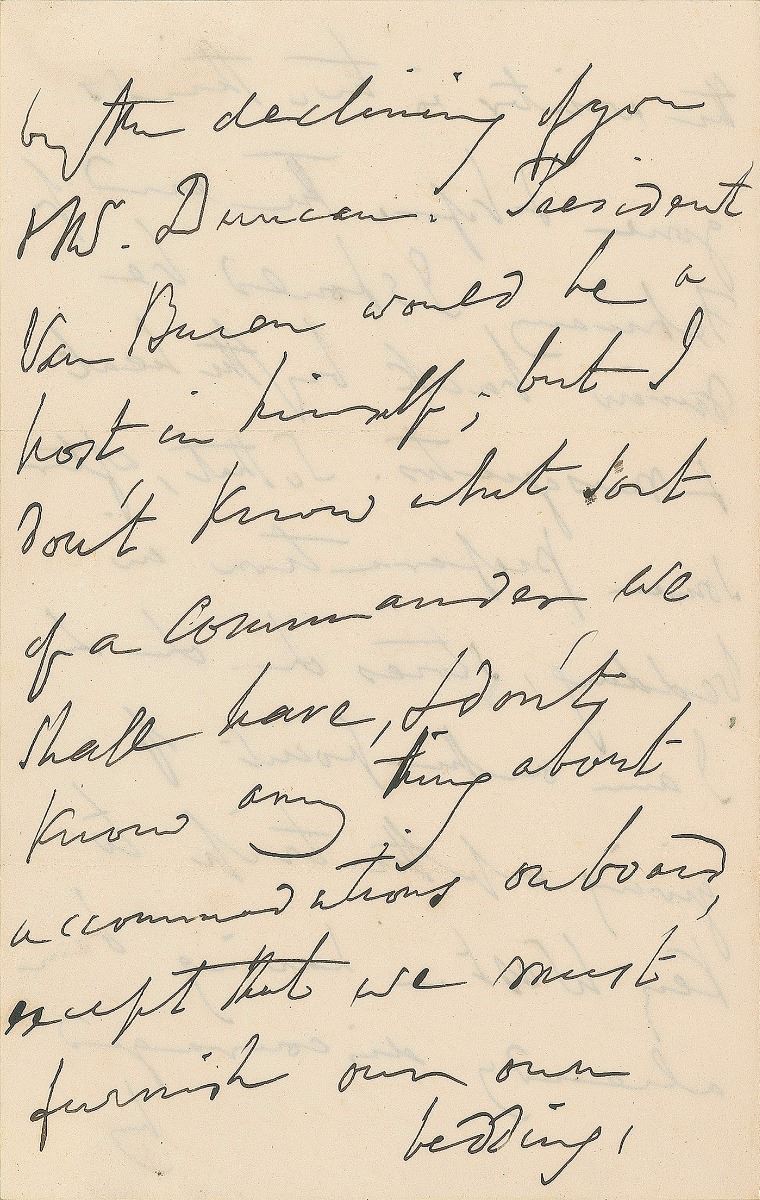 by the declining of you
Mrs. Duncan. President
Van Buren would be a
host in himself; but I
don't know what sort
of a commander we
shall have, I don't
know any thing about
accommodations on board,
except that we must
furnish our own
bedding,